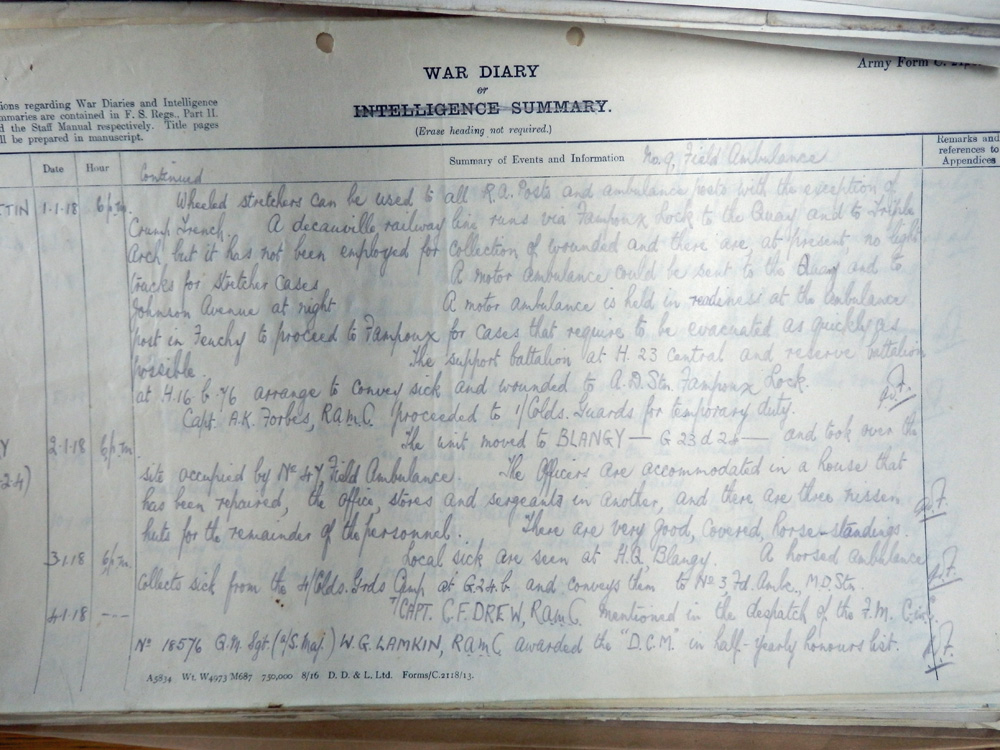 WAR DIARY
or
INTELLIGENCE SUMMARY.
(Erase heading not required.)
Army Form C.
ions regarding War Diaries and Intelligence
mmaries are contained in F. S. Regs., Part II.
d the Staff Manual respectively. Title pages
ll be prepared in manuscript.
Date Hour Summary of Events and Information No. 9, Field Ambulance Remarks and
references to
Appendices
Continued
TTIN 1.1.18 6 p.m. Wheeled stretchers can be used to all R.A. Posts and ambulance posts with the exception of
Crump Trench. A decauville railway line runs via Fampoux Lock to the Quay and to Triple
Arch, but it has not been employed for collection of wounded and there are, at present, no light
tracks for stretcher cases A motor ambulance could be sent to the Quay and to
Johnson Avenue at night A motor ambulance is held in readiness at the ambulance
post in Feuchy to proceed to Fampoux for cases that require to be evacuated as quickly as
possible. The support battalion at H. 23 Central and reserve battalion
at H.16.b.7/6 arrange to convey sick and wounded to A.D.Stn. Fampoux Lock.
Capt. A.K. Forbes, R.A.M.C. proceeded to 1/Colds. Guards for temporary duty.
Y 2.1.18 6 p.m. The unit moved to BLANGY — G 23 d 24 — and took over the
24) site occupied by No 47 Field Ambulance. The Officers are accommodated in a house that
has been repaired, the office, stores and sergeants in another, and there are three nissen
huts for the remainder of the personnel. There are very good, covered, horse-standings.
3.1.18 6 p.m. Local sick are seen at H.Q., Blangy. A horsed ambulance
collects sick from the 4/Colds. Grds Camp at G.24.b and conveys them to No 3, Fd. Amb., M.D.Stn.
4.1.18 --- T/CAPT. C.F. DREW, R.A.M.C. mentioned in the despatch of the F.M. C-in-C
No 18576 Q.M. Sgt. (a/S. Maj.) W.G. LAMKIN, R.A.M.C awarded the "D.C.M." in half-yearly honours list.
A5834 Wt. W4973 M687 750,000 8/16 D. D. & L. Ltd. Forms/C.2118/13.